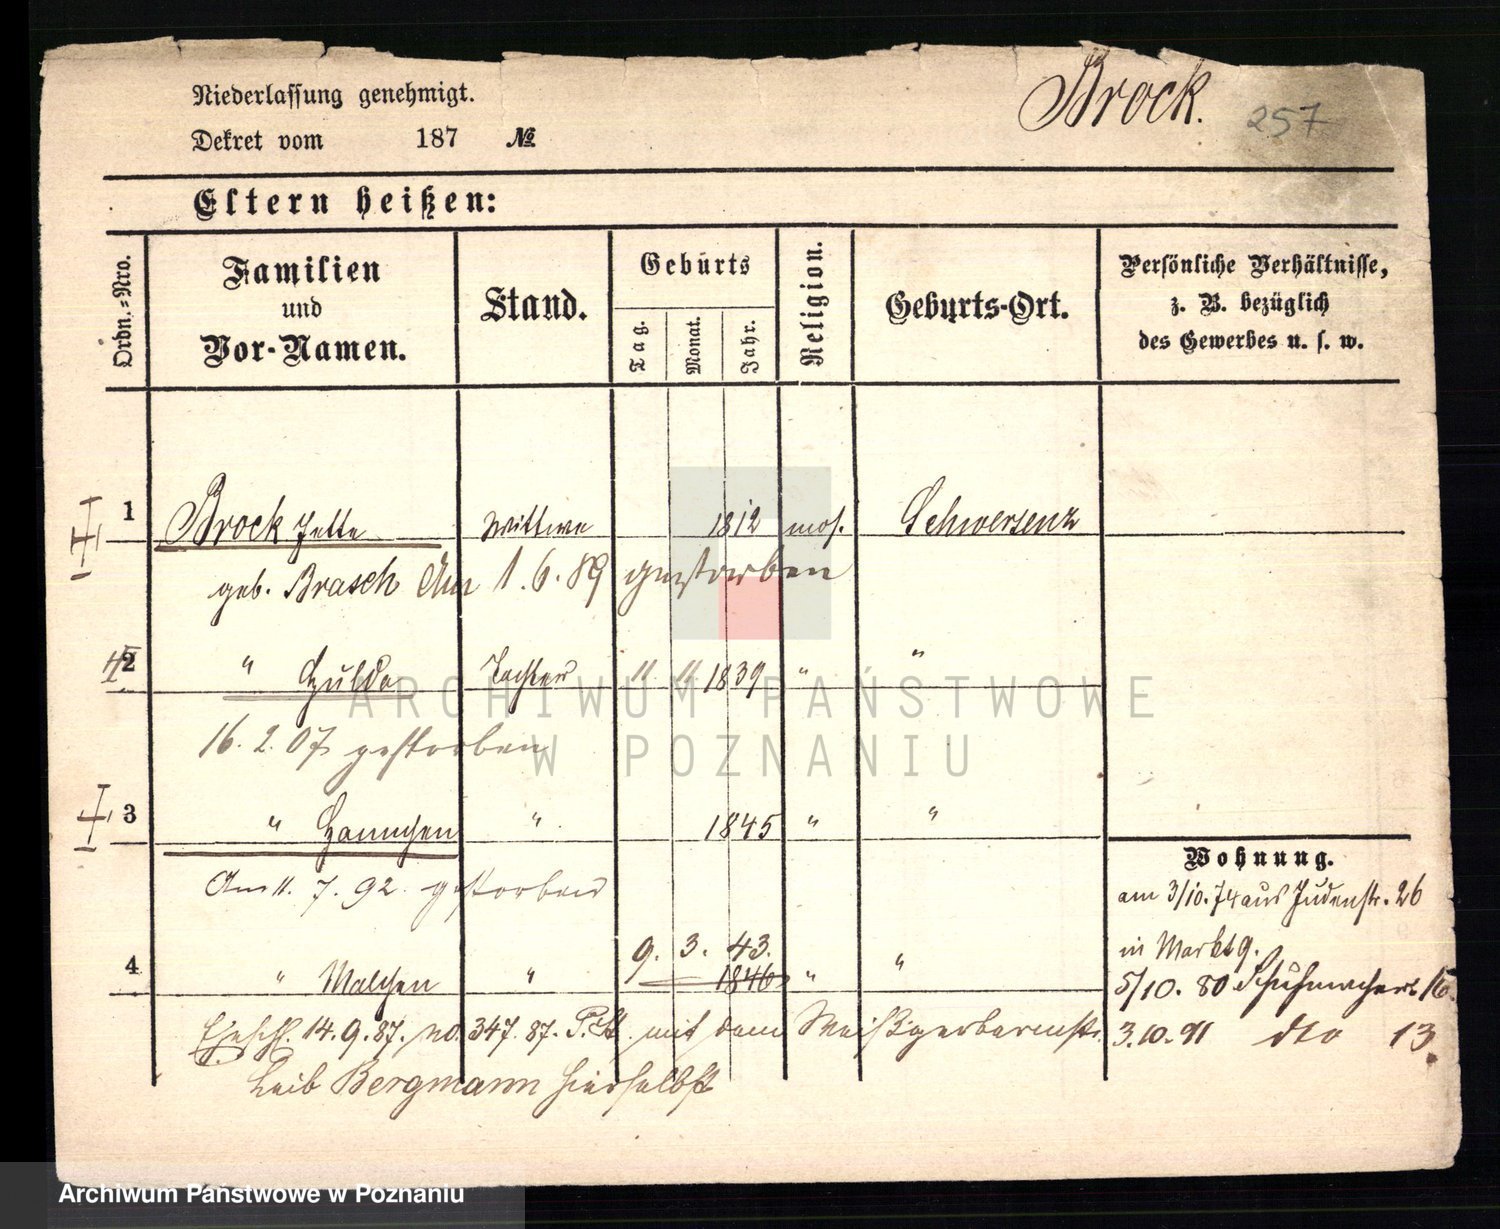 Niederlassung genehmigt.
Dekret vom 187 №
Brock.
257
Eltern heißen:
Ordn.-Nro.
Familien
und
Vor-Namen.
Stand.
Geburts
Tag.
Monat.
Jahr.
Religion.
Geburts-Ort.
Persönliche Verhältnisse,
z. B. bezüglich
des Gewerbes u. s. w.
1 Brock Jette Wittwe 1812 mos. Schwersenz
geb. Brasch Am 1.6.89 gestorben
2 " Hulda Tochter " " 1839 " "
16.2.07 gestorben
3 " Hannchen " 1845 " "
Am 11.7.92. gestorben
9. 3. 43.
4 " Malchen " 1846 " "
Ehesch. 14.9.87. No. 347.87. P. St. mit dem Weißgerbermstr.
Leib Bergmann hierselbst
Wohnung.
am 3/10.74 aus Judenstr. 26
in Markt 9.
5/10. 80 Schuhmacherstr. 16.
3.10.91 dto 13.
ARCHIWUM PAŃSTWOWE
W POZNANIU
Archiwum Państwowe w Poznaniu